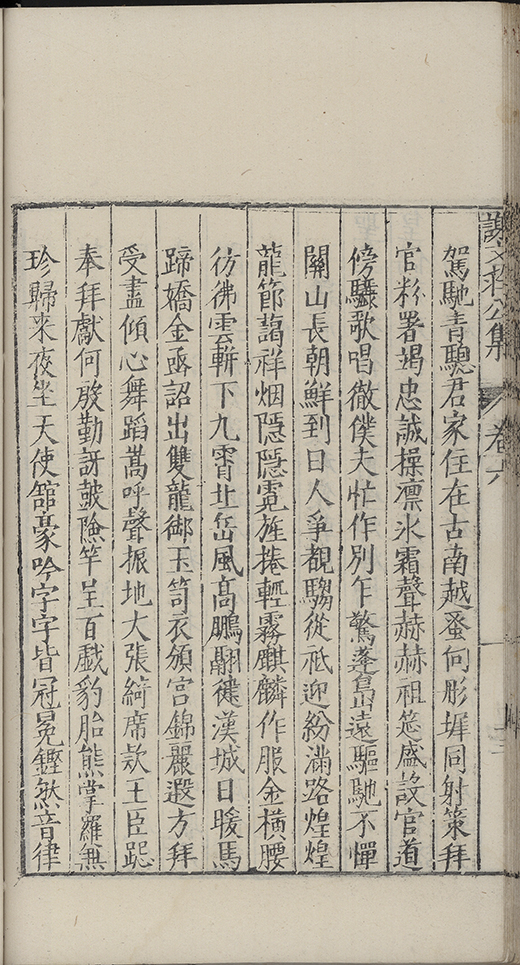 謝文莊公集 卷六
駕馳青驄君家住在古南越蚤向彤墀同射策拜
官粉署竭忠誠操凛氷霜聲赫赫祖筵盛設官道
傍驪歌唱徹僕夫忙作別乍驚蓬島遠驅馳不憚
關山長朝鮮到日人爭覩騶從祗迎紛滿路煌煌
龍節藹祥烟隱隱霓旌捲輕霧麒麟作服金橫腰
彷彿雲軿下九霄北岳風高鵬翮健漢城日暖馬
蹄嬌金函詔出雙龍御玉笥衣頒宮錦麗遐方拜
受盡傾心舞蹈嵩呼聲振地大張綺席欵王臣跽
奉拜獻何殷勤訝皷險竿呈百戲豹胎熊掌羅無
珍歸來夜坐天使舘豪吟字字皆冠冕鏗然音律